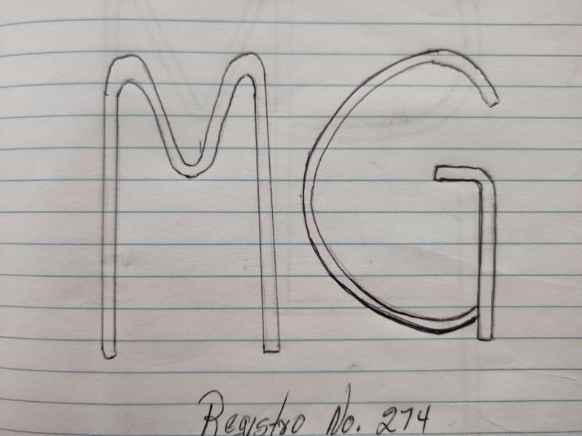 MG
Registro No. 274